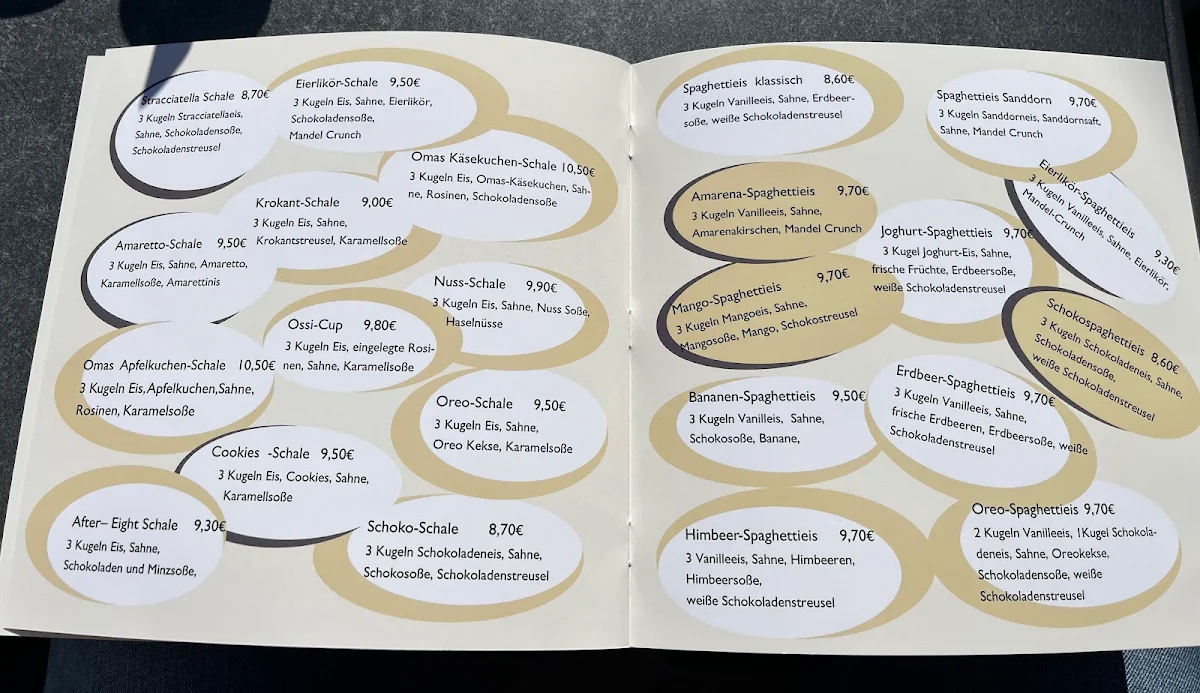 Stracciatella Schale 8,70€
3 Kugeln Stracciatellaeis,
Sahne, Schokoladensoße,
Schokoladenstreusel
Eierlikör-Schale 9,50€
3 Kugeln Eis, Sahne, Eierlikör,
Schokoladensoße,
Mandel Crunch
Omas Käsekuchen-Schale 10,50€
3 Kugeln Eis, Omas-Käsekuchen, Sah-
ne, Rosinen, Schokoladensoße
Krokant-Schale 9,00€
3 Kugeln Eis, Sahne,
Krokantstreusel, Karamellsoße
Amaretto-Schale 9,50€
3 Kugeln Eis, Sahne, Amaretto,
Karamellsoße, Amarettinis
Nuss-Schale 9,90€
3 Kugeln Eis, Sahne, Nuss Soße,
Haselnüsse
Ossi-Cup 9,80€
3 Kugeln Eis, eingelegte Rosi-
nen, Sahne, Karamellsoße
Omas Apfelkuchen-Schale 10,50€
3 Kugeln Eis,Apfelkuchen,Sahne,
Rosinen, Karamelsoße
Oreo-Schale 9,50€
3 Kugeln Eis, Sahne,
Oreo Kekse, Karamelsoße
Cookies -Schale 9,50€
3 Kugeln Eis, Cookies, Sahne,
Karamellsoße
After– Eight Schale 9,30€
3 Kugeln Eis, Sahne,
Schokoladen und Minzsoße,
Schoko-Schale 8,70€
3 Kugeln Schokoladeneis, Sahne,
Schokosoße, Schokoladenstreusel
Spaghettieis klassisch 8,60€
3 Kugeln Vanilleeis, Sahne, Erdbeer-
soße, weiße Schokoladenstreusel
Spaghettieis Sanddorn 9,70€
3 Kugeln Sanddorneis, Sanddornsaft,
Sahne, Mandel Crunch
Amarena-Spaghettieis 9,70€
3 Kugeln Vanilleeis, Sahne,
Amarenakirschen, Mandel Crunch
Eierlikör-Spaghettieis 9.30€
3 Kugeln Vanilleeis, Sahne, Eierlikör,
Mandel-Crunch
Joghurt-Spaghettieis 9,70€
3 Kugel Joghurt-Eis, Sahne,
frische Früchte, Erdbeersoße,
weiße Schokoladenstreusel
Mango-Spaghettieis 9,70€
3 Kugeln Mangoeis, Sahne,
Mangosoße, Mango, Schokostreusel
Schokospaghettieis 8,60€
3 Kugeln Schokoladeneis, Sahne,
Schokoladensoße,
weiße Schokoladenstreusel
Bananen-Spaghettieis 9,50€
3 Kugeln Vanilleis, Sahne,
Schokosoße, Banane,
Erdbeer-Spaghettieis 9,70€
3 Kugeln Vanilleeis, Sahne,
frische Erdbeeren, Erdbeersoße, weiße
Schokoladenstreusel
Himbeer-Spaghettieis 9,70€
3 Vanilleeis, Sahne, Himbeeren,
Himbeersoße,
weiße Schokoladenstreusel
Oreo-Spaghettieis 9,70€
2 Kugeln Vanilleeis, 1Kugel Schokola-
deneis, Sahne, Oreokekse,
Schokoladensoße, weiße
Schokoladenstreusel